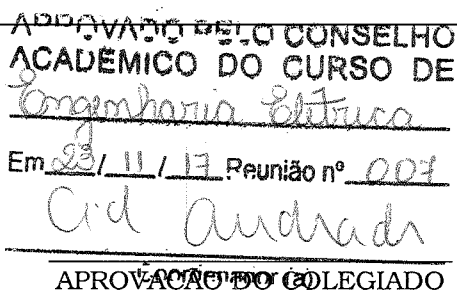 APROVADO PELO CONSELHO
ACADÊMICO DO CURSO DE
Engenharia Elétrica
Em 23/ 11 / 17 Reunião nº 007
Cid Andrade
Coordenador (a)
APROVAÇÃO DO COLEGIADO